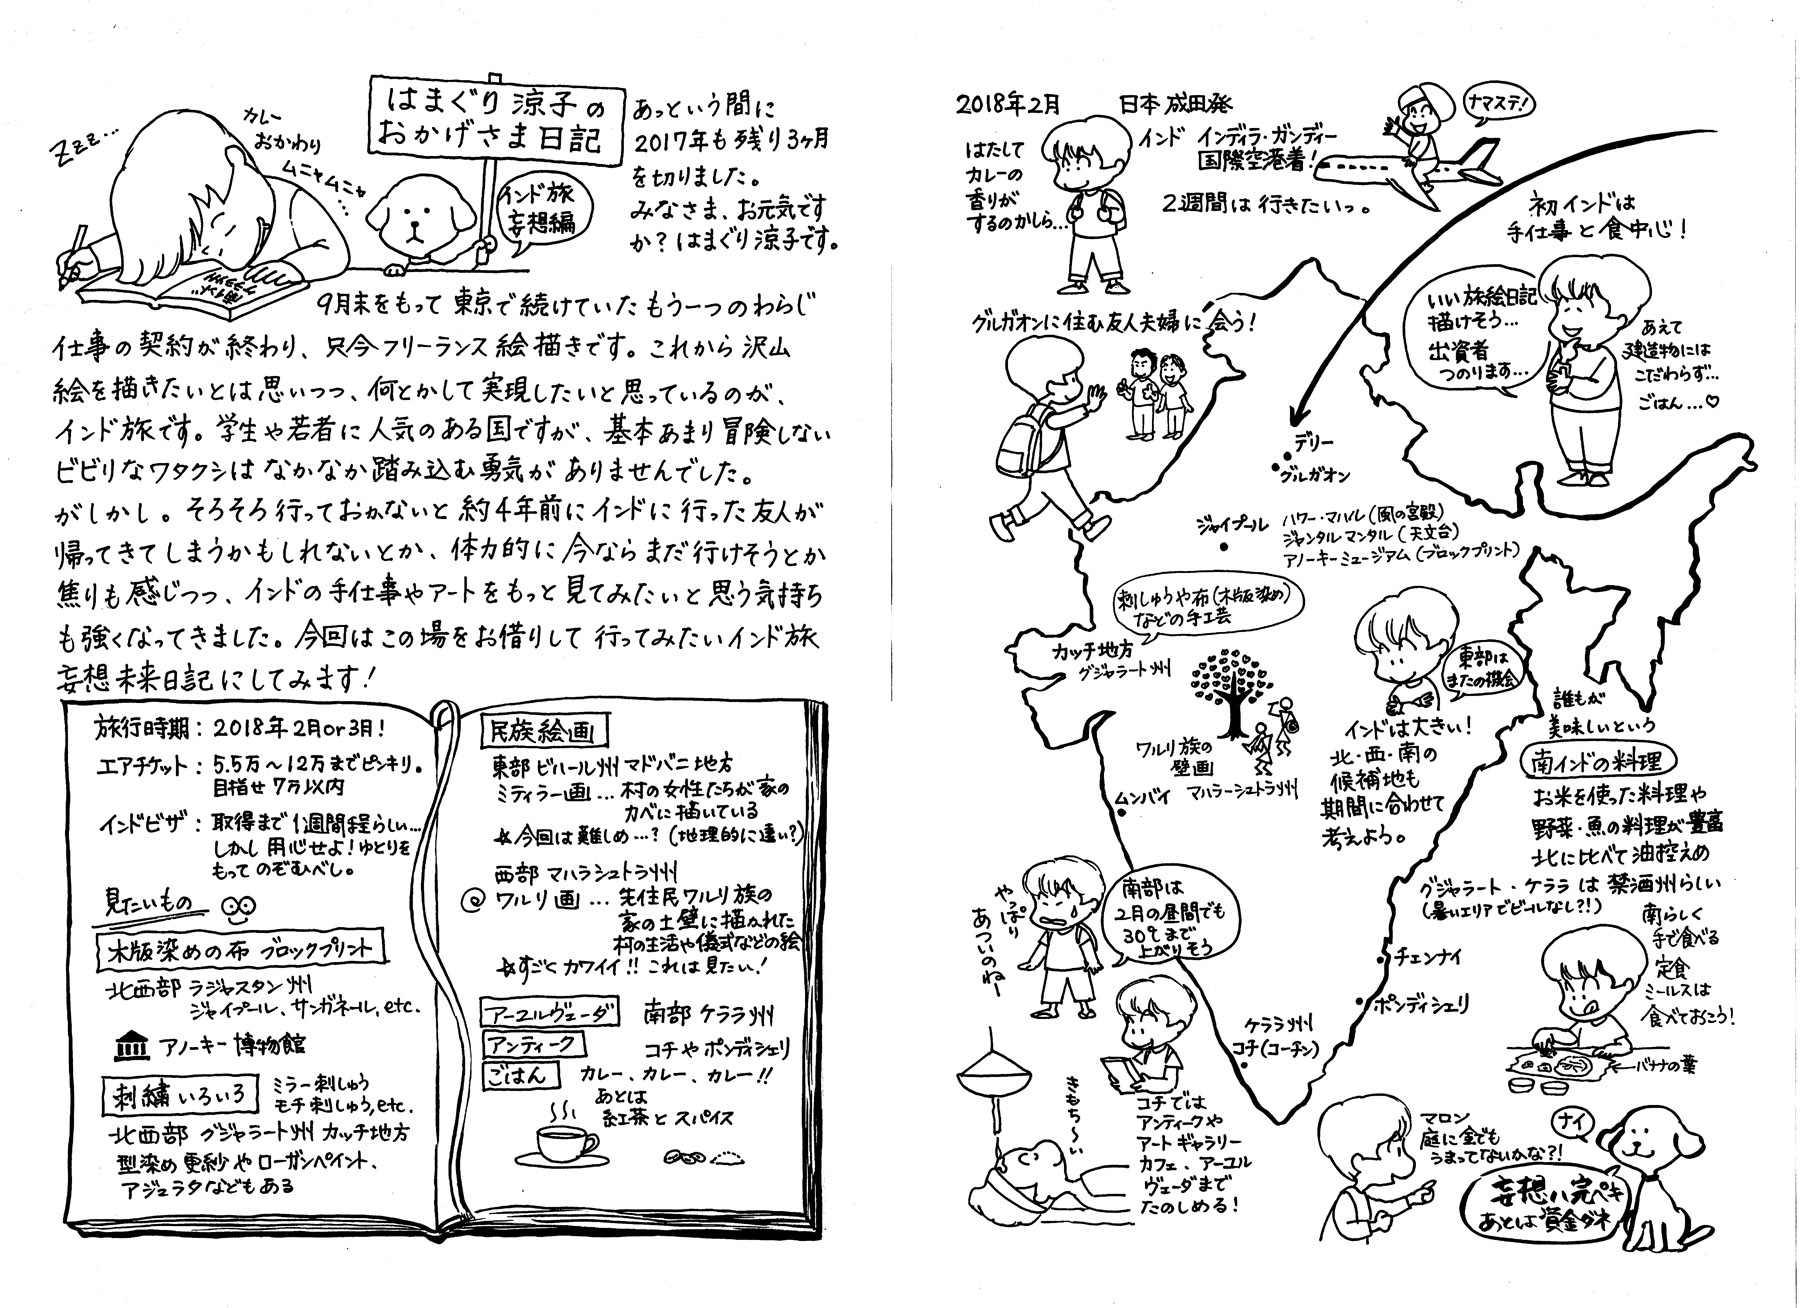 Zzz...
カレー
おかわり
ムニャムニャ
はまぐり 涼子の
おかげさま日記
インド旅
妄想編
あっという間に
2017年も残り3ヶ月
を切りました。
みなさま、お元気です
か？はまぐり涼子です。
9月末をもって東京で続けていたもう一つのわらじ
仕事の契約が終わり、只今フリーランス絵描きです。これから沢山
絵を描きたいとは思いつつ、何とかして実現したいと思っているのが、
インド旅です。学生や若者に人気のある国ですが、基本あまり冒険しない
ビビリなワタクシはなかなか踏み込む勇気がありませんでした。
がしかし。そろそろ行っておかないと約4年前にインドに行った友人が
帰ってきてしまうかもしれないとか、体力的に今ならまだ行けそうとか
焦りも感じつつ、インドの手仕事やアートをもっと見てみたいと思う気持ち
も強くなってきました。今回はこの場をお借りして行ってみたいインド旅
妄想未来日記にしてみます！
旅行時期：2018年2月or3月！
エアチケット：5.5万〜12万までピンキリ。
目指せ7万以内
インドビザ：取得まで1週間程らしい...
しかし用心せよ！ゆとりを
もってのぞむべし。
見たいもの
木版染めの布 ブロックプリント
北西部 ラジャスタン州
ジャイプール、サンガネール,etc.
アノーキー博物館
刺繍いろいろ
ミラー刺しゅう
モチ刺しゅう,etc.
北西部 グジャラート州 カッチ地方
型染め更紗やローガンペイント、
アジュラクなどもある
民族絵画
東部ビハール州マドバニ地方
ミティラー画...村の女性たちが家の
カベに描いている
☆今回は難しめ...？(地理的に遠い？)
西部 マハラシュトラ州
ワルリ画...先住民ワルリ族の
家の土壁に描かれた
村の生活や儀式などの絵
☆すごくカワイイ！！これは見たい！
アーユルヴェーダ
南部 ケララ州
アンティーク
コチやポンディシェリ
ごはん
カレー、カレー、カレー！！
あとは
紅茶とスパイス
2018年2月 日本 成田発
インド インディラ・ガンディー
国際空港着！
ナマステ！
はたして
カレーの
香りが
するのかしら...
2週間は行きたいっ。
初インドは
手仕事と食中心！
グルガオンに住む友人夫婦に会う！
いい旅絵日記
描けそう...
出資者
つのります...
あえて
建造物には
こだわらず...
ごはん...♡
デリー
グルガオン
ジャイプール
ハワー・マハル(風の宮殿)
ジャンタルマンタル(天文台)
アノーキーミュージアム(ブロックプリント)
刺しゅうや布(木版染め)
などの手工芸
カッチ地方
グジャラート州
ワルリ族の
壁画
マハラーシュトラ州
ムンバイ
東部は
またの機会
インドは大きい！
北・西・南の
候補地も
期間に合わせて
考えよう。
誰もが
美味しいという
南インドの料理
お米を使った料理や
野菜・魚の料理が豊富
北に比べて油控えめ
グジャラート・ケララは禁酒州らしい
(暑いエリアでビールなし？！)
やっぱり
あついのねー
南部は
2月の昼間でも
30℃まで
上がりそう
チェンナイ
ポンディシェリ
ケララ州
コチ(コーチン)
南らしく
手で食べる
定食
ミールスは
食べておこう！
←バナナの葉
きもち〜い
コチでは
アンティークや
アートギャラリー
カフェ、アーユル
ヴェーダまで
たのしめる！
マロン
庭に金でも
うまってないかな？！
ナイ
妄想ハ完ペキ
あとは資金ダネ